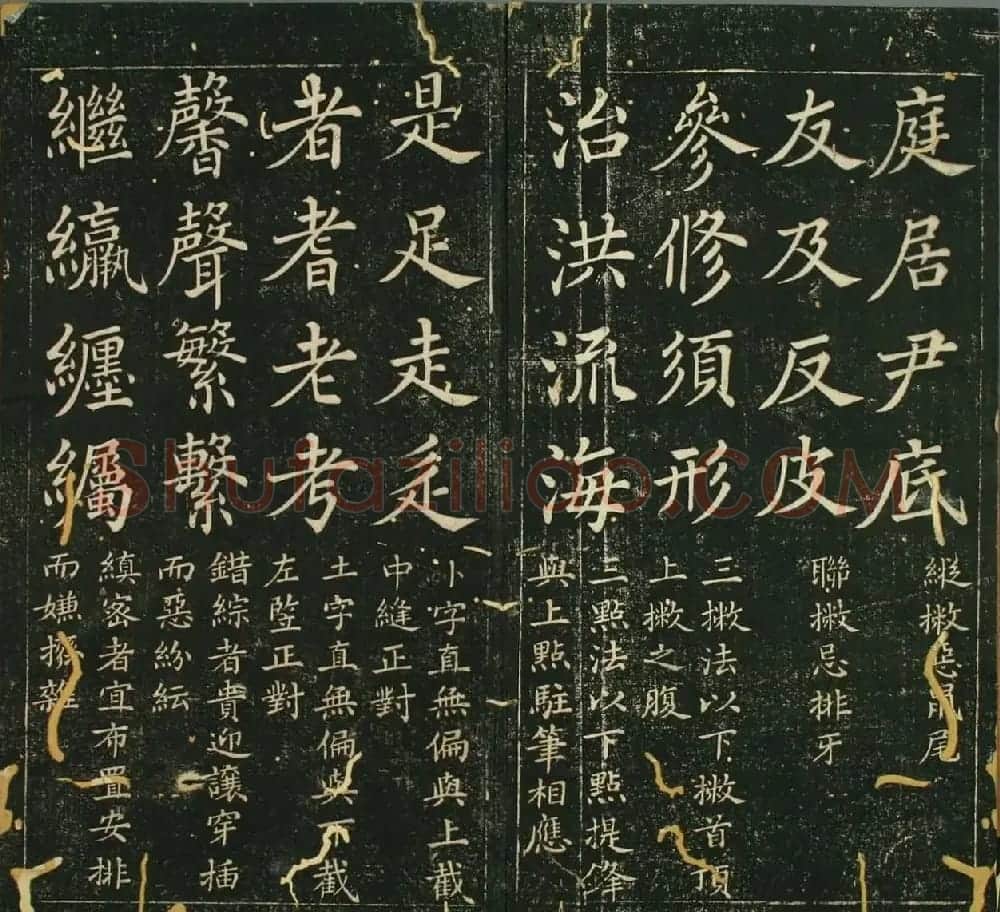 庭居尹底
縱撇惡鼠尾
友及反皮
聯撇忌排牙
參修須形
三撇法以下撇首頂
上撇之腹
治洪流海
三點法以下點提鋒
與上點駐筆相應
是足走辵
卝字直無偏與上截
中縫正對
者耆老考
土字直無偏與下截
左竪正對
馨聲繁繫
錯綜者貴迎讓穿插
而惡紛紜
繼纏
縝密者宜布置安排
而嫌撥雜
Shufaziliao.COM